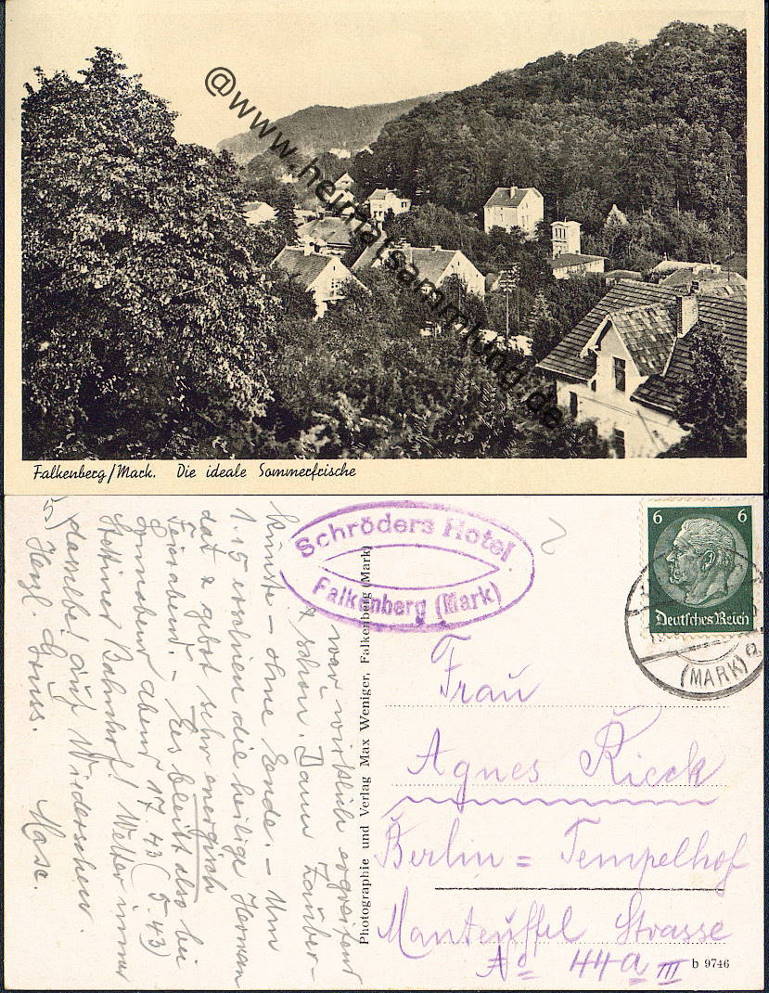 @www.heimatsammlung.de
Falkenberg/Mark. Die ideale Sommerfrische
Schröders Hotel.
Falkenberg (Mark)
6 6
Deutsches Reich
(MARK)
Frau
Agnes Rieck
Berlin = Tempelhof
Manteuffel Strasse
No 44a III
b 9746
Photographie und Verlag Max Weniger, Falkenberg (Mark)
war wirklich ergreifend
& schön. Dann Zauber-
künste - ohne Ende. - Um
1.15 die heilige Herman
dat & gebot sehr energisch
Feierabend. - Es bleibt also bei
Sonnabend abend 17.43 (5.43)
Stettiner Bahnhof! Wetter immer
dasselbe! Auf Wiedersehen.
Herzl. Gruss.